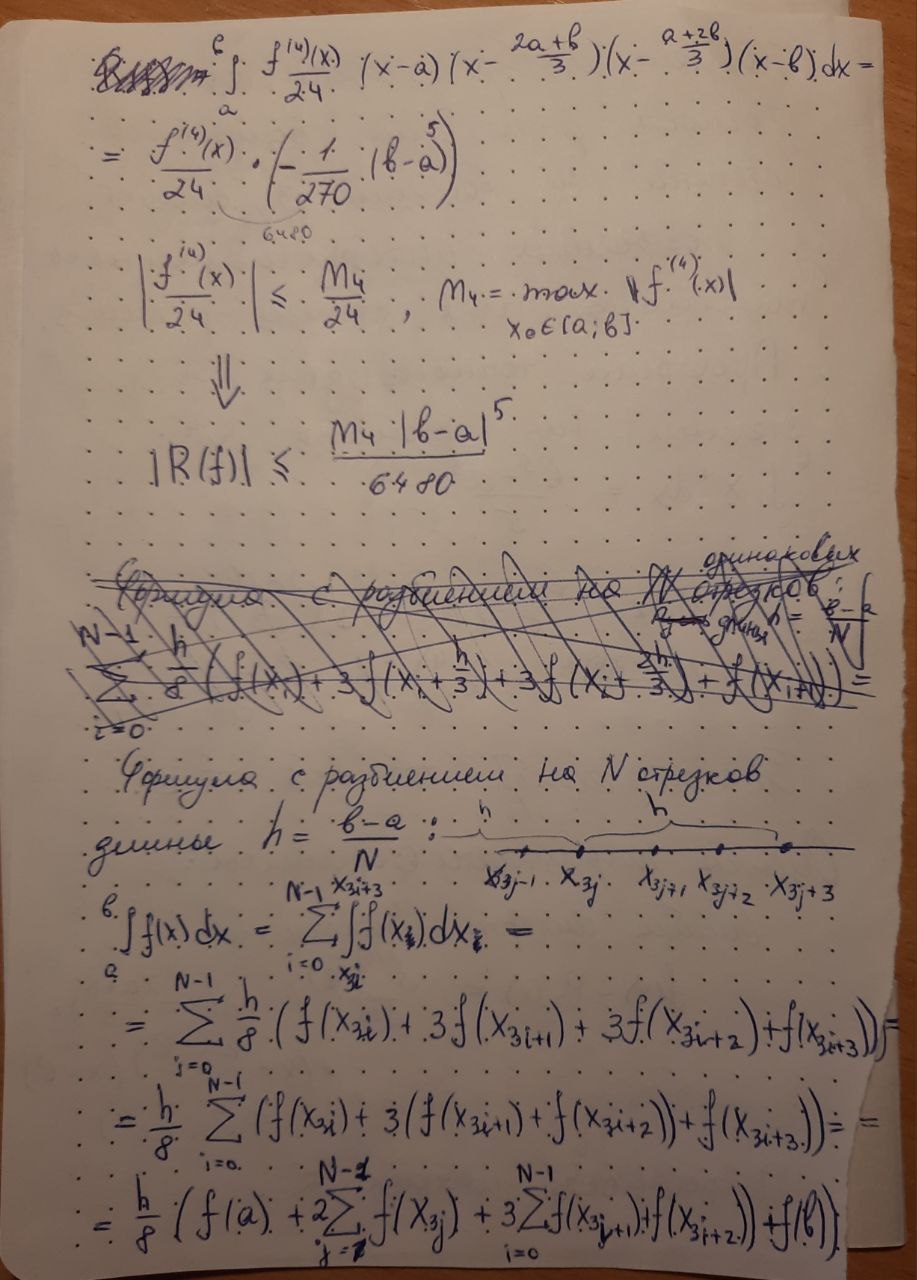 ∫_a^в f⁽⁴⁾(x)/24 (x-a)(x- (2a+в)/3)(x- (a+2в)/3)(x-в)dx =
= f⁽⁴⁾(x)/24 · (- 1/270 (в-a)⁵)
6480
|f⁽⁴⁾(x)/24| ≤ M₄/24 , M₄ = max |f⁽⁴⁾(x)|
x₀∈[a;в]
⇓
|R(f)| ≤ M₄ |в-a|⁵ / 6480
одинаковых
Формула с разбиением на N отрезков:
длины h = (в-a)/N
∑_{i=0}^{N-1} h/8 (f(xᵢ) + 3f(xᵢ + h/3) + 3f(xᵢ + 2h/3) + f(xᵢ₊₁)) =
Формула с разбиением на N отрезков
длины h = (в-a)/N : h h
x_{3j-1} x_{3j} x_{3j+1} x_{3j+2} x_{3j+3}
∫_a^в f(x)dx = ∑_{i=0}^{N-1} ∫_{x_{3i}}^{x_{3i+3}} f(x)dx =
= ∑_{i=0}^{N-1} h/8 (f(x_{3i}) + 3f(x_{3i+1}) + 3f(x_{3i+2}) + f(x_{3i+3})) =
= h/8 ∑_{i=0}^{N-1} (f(x_{3i}) + 3(f(x_{3i+1}) + f(x_{3i+2})) + f(x_{3i+3})) = =
= h/8 (f(a) + 2∑_{j=1}^{N-1} f(x_{3j}) + 3∑_{i=0}^{N-1} f(x_{3i+1}) + f(x_{3i+2})) + f(в))